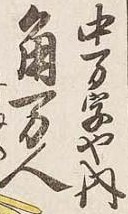 中万字や内
角万人